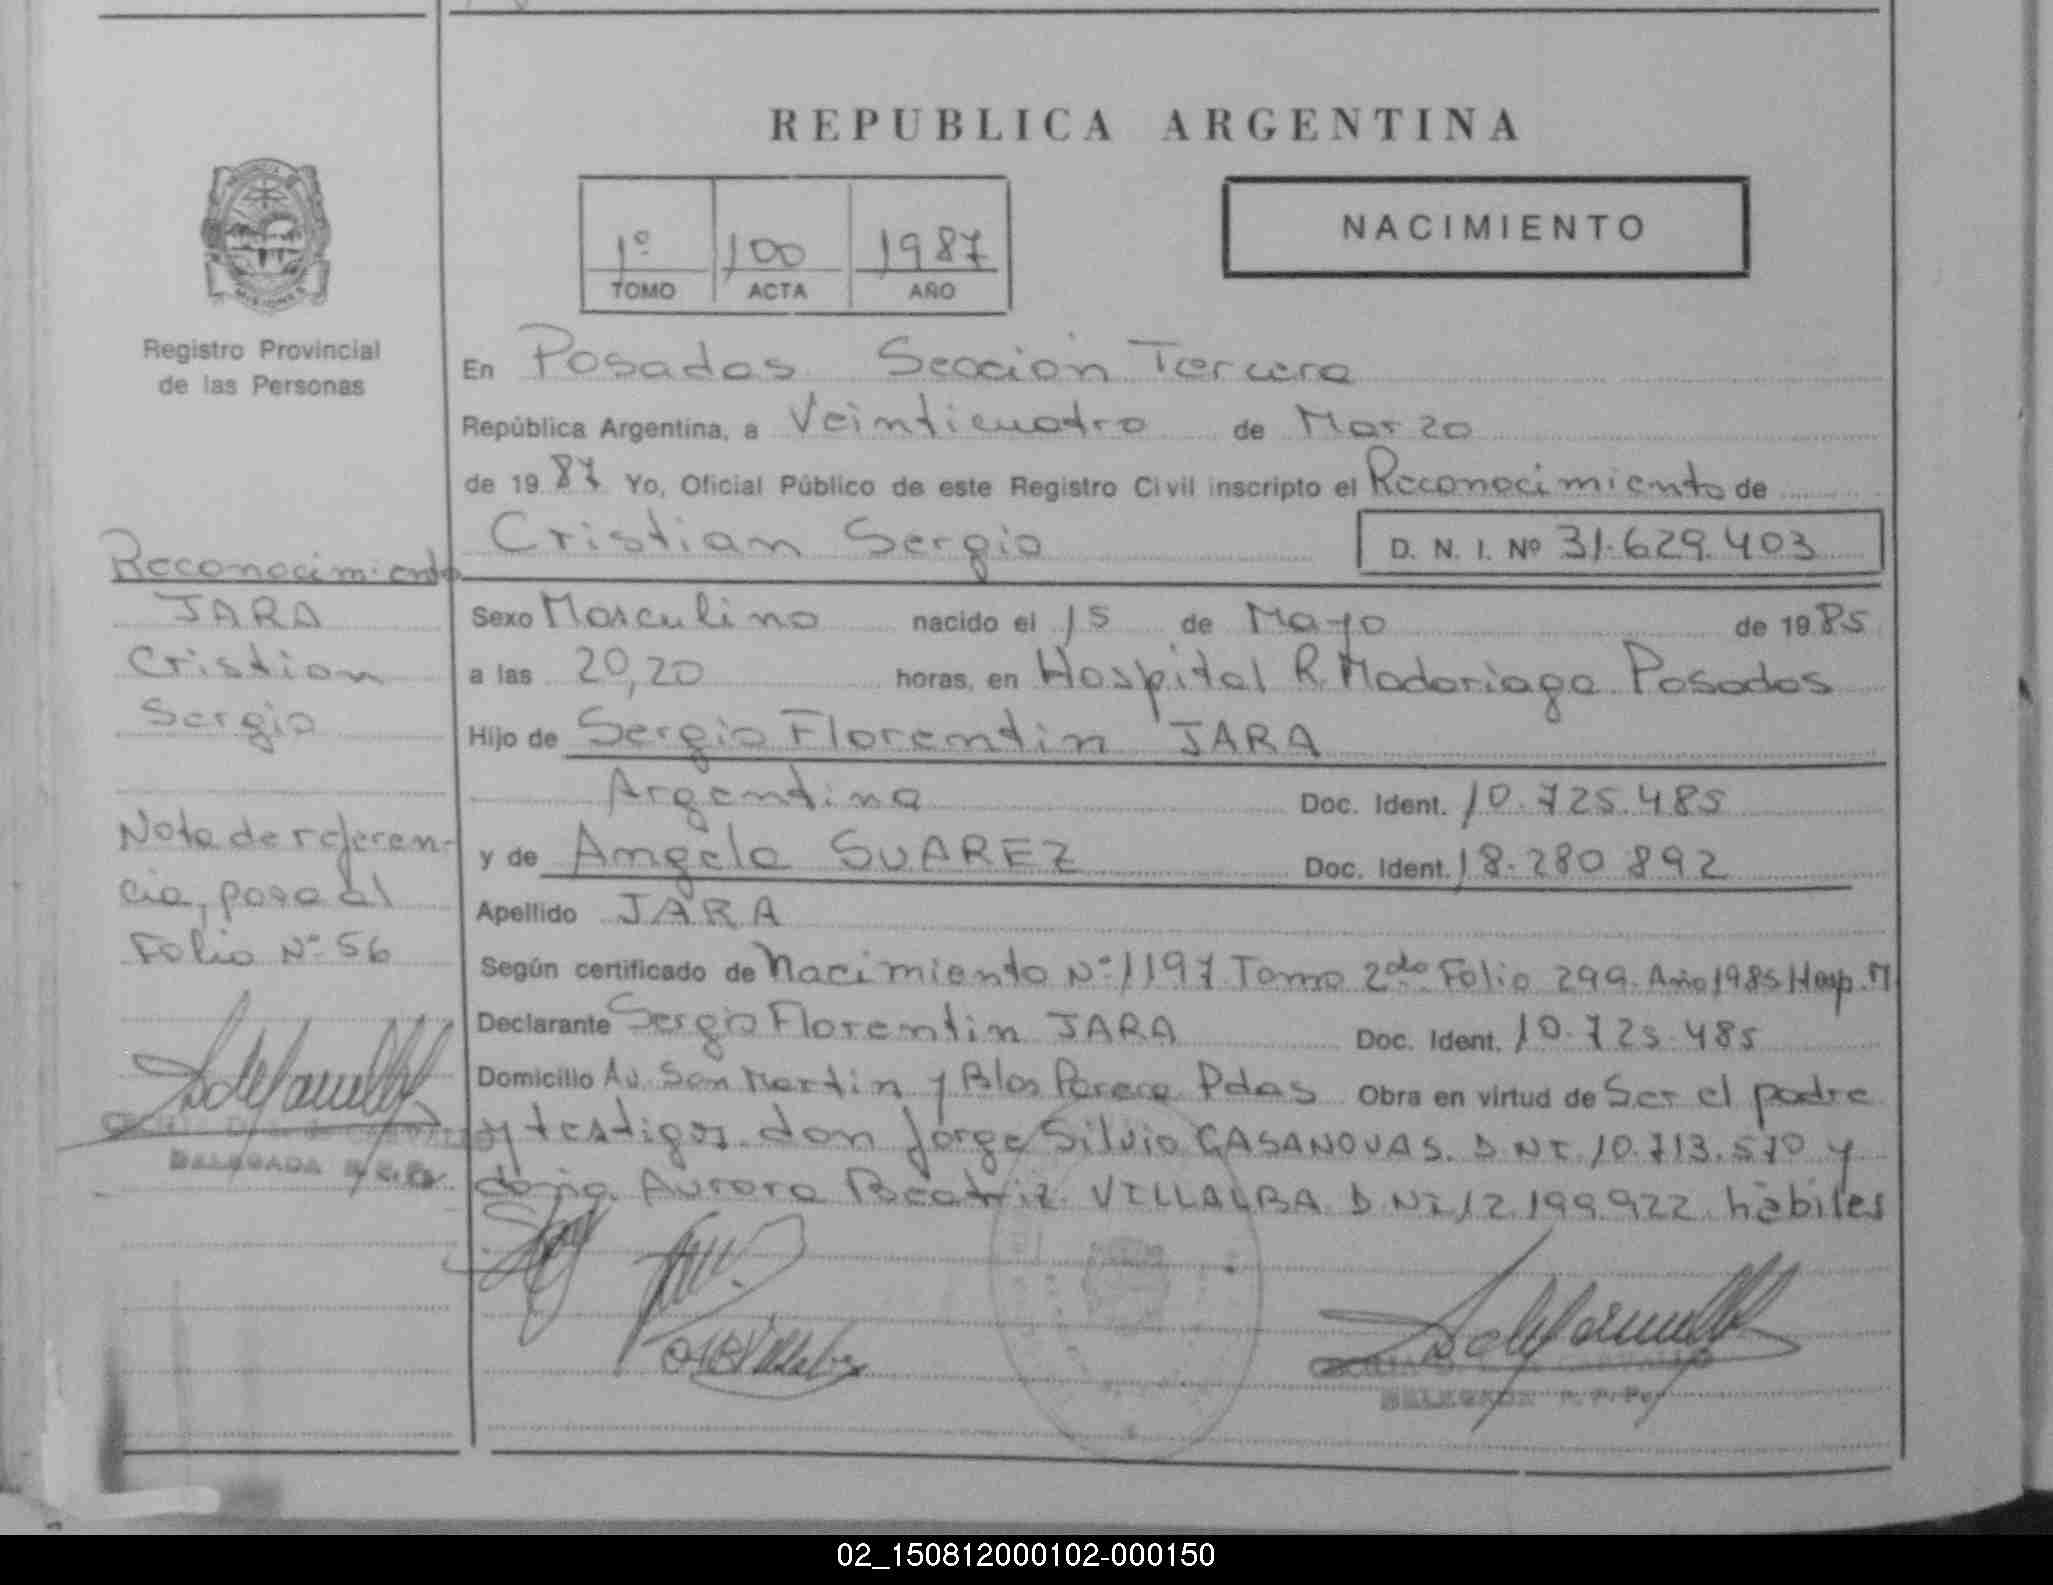 REPUBLICA ARGENTINA
NACIMIENTO
1º 100 1987
TOMO ACTA AÑO
MISIONES
Registro Provincial
de las Personas
En Posadas Sección Tercera
República Argentina, a Veinticuatro de Marzo
de 1987 Yo, Oficial Público de este Registro Civil inscripto el Reconocimiento de
Cristian Sergio D. N. I. Nº 31.629.403
Sexo Masculino nacido el 15 de Mayo de 1985
a las 20,20 horas, en Hospital R. Madariaga Posadas
Hijo de Sergio Florentin JARA
Argentina Doc. Ident. 10.725.485
y de Angela SUAREZ Doc. Ident. 18.280.892
Apellido JARA
Según certificado de Nacimiento Nº 1197 Tomo 2do Folio 299. Año 1985 Hosp. M
Declarante Sergio Florentin JARA Doc. Ident. 10.725.485
Domicilio Av. San Martin y Blas Parera Pdas Obra en virtud de Ser el padre
y testigos don Jorge Silvio CASANOVAS. D NI. 10.713.570 y
doña Aurora Beatriz VILLALBA D NI 12.199.922 hábiles
Reconocimiento
JARA
Cristian
Sergio
Nota de referen-
cia, pasa al
Folio Nº 56
DELEGADA R. P. P.
DELEGADA R. P. P.
02_150812000102-000150